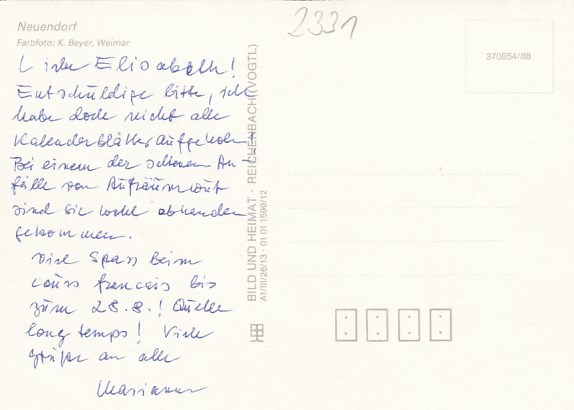 Neuendorf
Farbfoto: K. Beyer, Weimar
2331
370854/88
Liebe Elisabeth!
Entschuldige bitte, ich
habe doch nicht alle
Kalenderblätter aufgehoben.
Bei einem der seltenen An-
fälle von Aufräumwut
sind sie wohl abhanden
gekommen.
Viel Spass beim
cours francais bis
zum 28.8.! Quelle
long temps! Viele
Grüße an alle
Marianne
BILD UND HEIMAT · REICHENBACH (VOGTL)
A1/III/26/13 · 01 01 1599/12